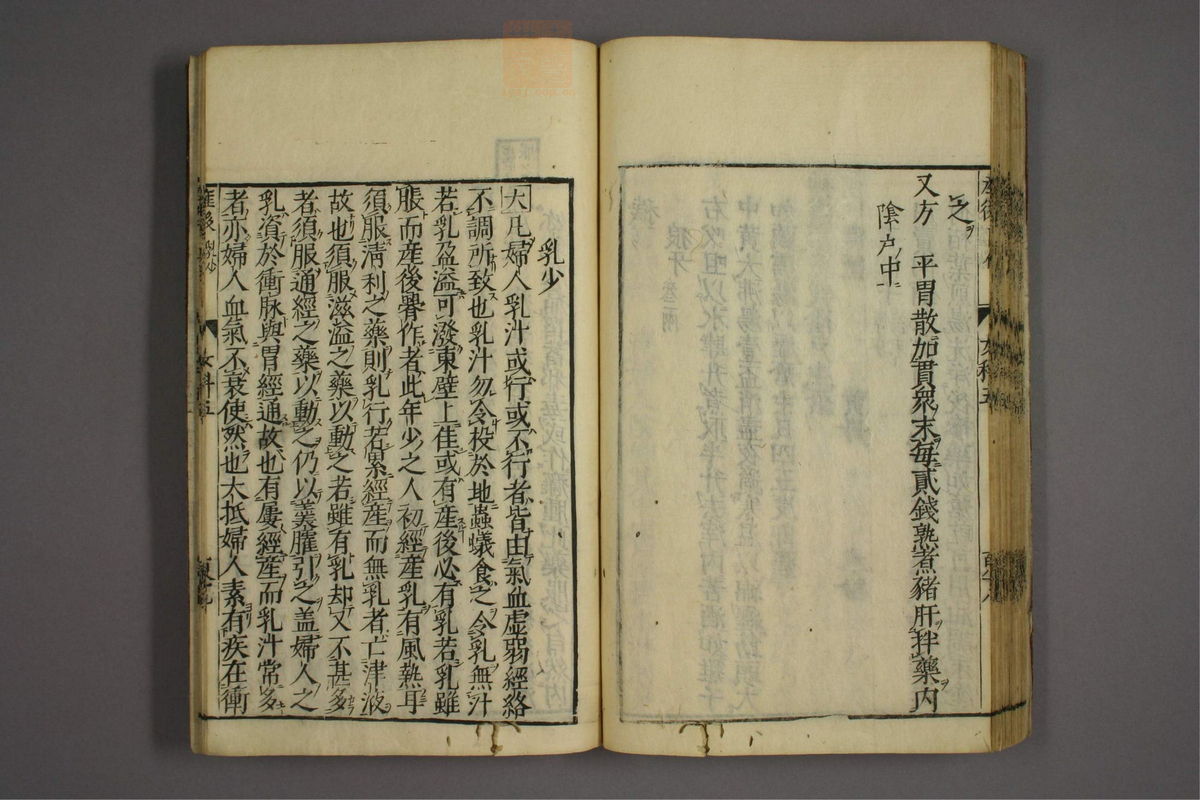 之
又方 平胃散加貫衆末每貳錢熟煮豬肝拌藥内
陰戸中
乳少
大凡婦人乳汁或行或不行者皆由氣血虛弱經絡
不調所致也乳汁勿令投於地蟲蟻食之令乳無汁
若乳盈溢可潑東壁上佳或有產後必有乳若乳雖
脹而產後作者此年少之人初經產乳有風熱耳
須服清利之藥則乳行若累經產而無乳者亡津液
故也須服滋溢之藥以動之若雖有乳却又不甚多
者須服通經之藥以動之仍以羹臛引之盖婦人之
乳資於衝脉與胃經通故也有屢經產而乳汁常多
者亦婦人血氣不衰使然也大抵婦人素有疾在衝
產後 乳少 女科五